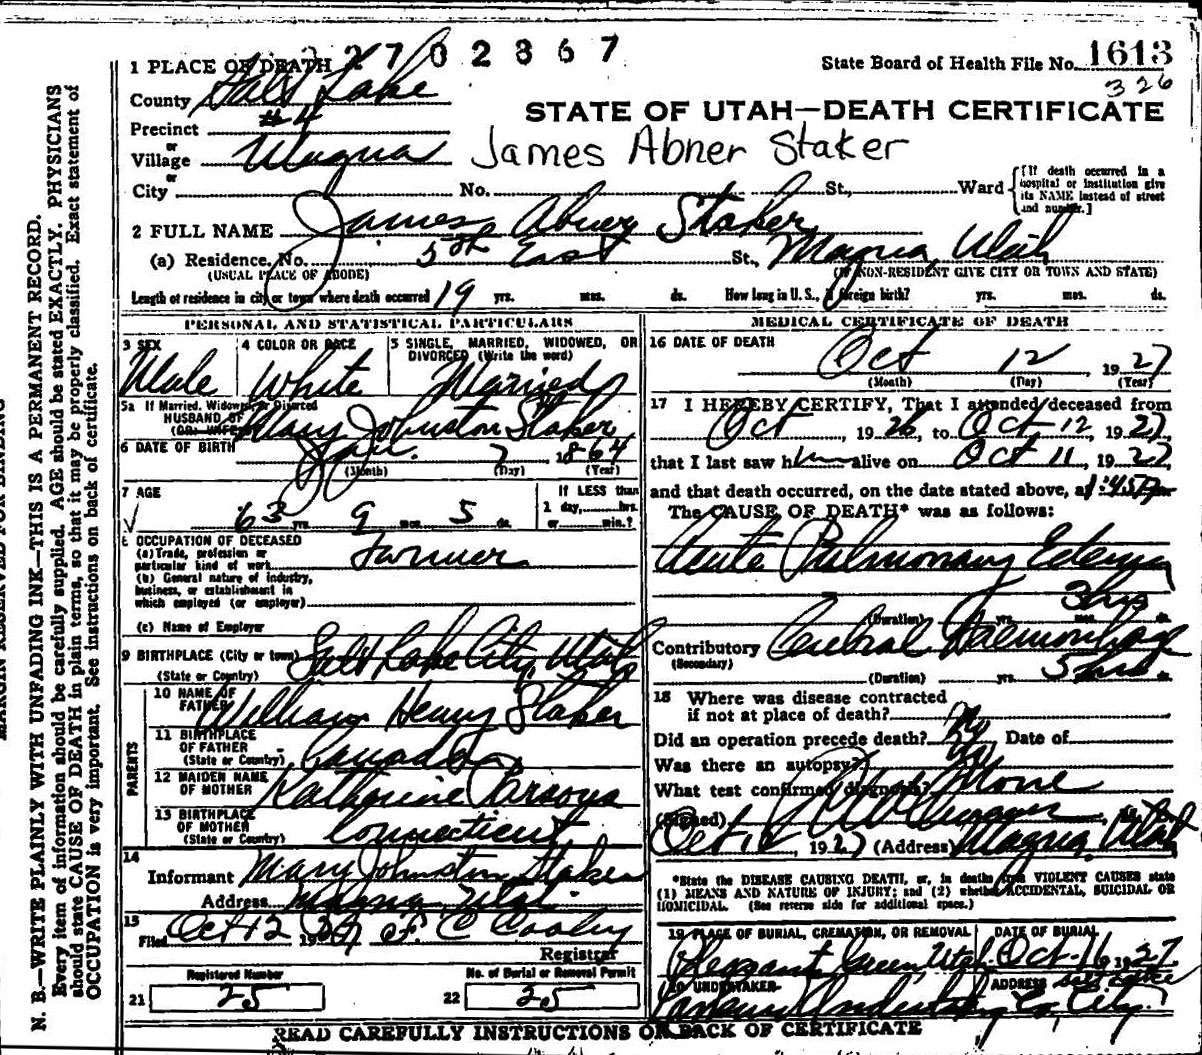 2702367
1 PLACE OF DEATH
State Board of Health File No. 1613
326
County Salt Lake
STATE OF UTAH—DEATH CERTIFICATE
Precinct #4
or
Village Magna
James Abner Staker
or
City No. St., Ward
[If death occurred in a hospital or institution give its NAME instead of street and number.]
2 FULL NAME James Abner Staker
(a) Residence, No. 5th East St., Magna, Utah
(USUAL PLACE OF ABODE) (IF NON-RESIDENT GIVE CITY OR TOWN AND STATE)
Length of residence in city or town where death occurred 19 yrs. mos. ds. How long in U. S., if foreign birth? yrs. mos. ds.
PERSONAL AND STATISTICAL PARTICULARS
3 SEX Male
4 COLOR OR RACE White
5 SINGLE, MARRIED, WIDOWED, OR DIVORCED (Write the word) Married
5a If Married, Widowed, or Divorced
HUSBAND OF
(OR) WIFE OF Mary Johnston Staker
6 DATE OF BIRTH Jan. 7 1864
(Month) (Day) (Year)
7 AGE
63 yrs. 9 mos. 5 ds.
If LESS than
1 day, hrs.
or min.?
8 OCCUPATION OF DECEASED
(a) Trade, profession or
particular kind of work Farmer
(b) General nature of industry,
business, or establishment in
which employed (or employer)
(c) Name of Employer
9 BIRTHPLACE (City or town) Salt Lake City, Utah
(State or Country)
PARENTS
10 NAME OF
FATHER William Henry Staker
11 BIRTHPLACE
OF FATHER
(State or Country) Canada
12 MAIDEN NAME
OF MOTHER Katherine Parsons
13 BIRTHPLACE
OF MOTHER
(State or Country) Connecticut
14
Informant Mary Johnston Staker
Address Magna Utah
15
Filed Oct 12 1927 F. C. Cooley
Registrar
Registered Number
21 25
No. of Burial or Removal Permit
22 25
MEDICAL CERTIFICATE OF DEATH
16 DATE OF DEATH
Oct 12 1927
(Month) (Day) (Year)
17 I HEREBY CERTIFY, That I attended deceased from
Oct, 1926, to Oct 12 1927
that I last saw him alive on Oct 11, 1927
and that death occurred, on the date stated above, at 1:45 Pm
The CAUSE OF DEATH* was as follows:
Acute Pulmonary Edema
3 hrs.
(Duration) yrs. mos. ds.
Contributory Cerebral Haemorrhage
(Secondary)
(Duration) yrs. 5 hrs.
18 Where was disease contracted
if not at place of death?
Did an operation precede death? No Date of
Was there an autopsy? No
What test confirmed diagnosis? None
(Signed) M.D.
Oct 12, 1927 (Address) Magna, Utah
*State the DISEASE CAUSING DEATH, or, in deaths from VIOLENT CAUSES state
(1) MEANS AND NATURE OF INJURY; and (2) whether ACCIDENTAL, SUICIDAL OR
HOMICIDAL. (See reverse side for additional space.)
19 PLACE OF BURIAL, CREMATION, OR REMOVAL
Pleasant Green, Utah
DATE OF BURIAL
Oct-16 1927
20 UNDERTAKER
Undertaking Co,
ADDRESS Salt Lake
City
READ CAREFULLY INSTRUCTIONS ON BACK OF CERTIFICATE
MARGIN RESERVED FOR BINDING
N. B.—WRITE PLAINLY WITH UNFADING INK—THIS IS A PERMANENT RECORD.
Every item of information should be carefully supplied. AGE should be stated EXACTLY. PHYSICIANS
should state CAUSE OF DEATH in plain terms, so that it may be properly classified. Exact statement of
OCCUPATION is very important. See instructions on back of certificate.